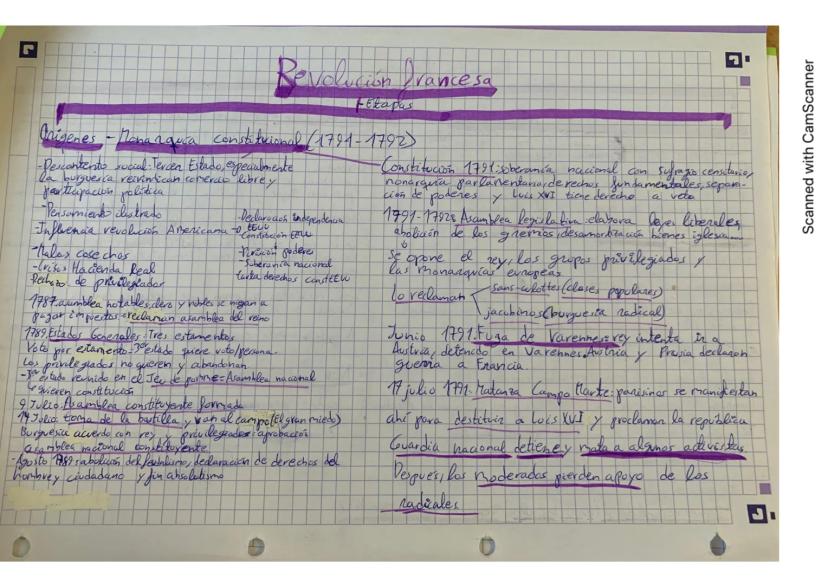 Revolución francesa
Etapas
Orígenes - Monarquía constitucional (1791-1792)
-Descontento social: Tercer Estado, especialmente
la burguesía reivindican comercio libre y
participación política
-Pensamiento ilustrado
-Influencia revolución Americana
-Declaración independencia
EEUU
Constitución EEUU
-División poderes
-Soberanía nacional
Carta derechos const EEUU
-Malas cosechas
-Crisis Hacienda Real
Rechazo de privilegiados
1787: asamblea notables, clero y nobles se niegan a
pagar impuestos reclaman asamblea del reino
1789, Estados Generales: Tres estamentos
Voto por estamento: 3er estado quiere voto/persona.
Los privilegiados no quieren y abandonan
-3er estado reunido en el Jeu de paume=Asamblea nacional
quieren constitución
9 Julio: Asamblea constituyente formada
14 Julio toma de la bastilla, y van al campo (El gran miedo)
Burguesía acuerdo con rey y privilegiados: aprobación
asamblea nacional constituyente
-Agosto 1789: abolición del feudalismo, declaración de derechos del
hombre y ciudadano y fin absolutismo
Constitución 1791: soberanía nacional con sufragio censitario,
monarquía parlamentaria derechos fundamentales, separa-
ción de poderes y Luis XVI tiene derecho a veto
1791-1792 Asamblea legislativa elabora leyes liberales
abolición de los gremios, desamortización bienes iglesia
Se opone el rey, los grupos privilegiados y
las monarquías europeas
Lo reclaman
sans-culottes (clases populares)
jacobinos (burguesía radical)
Junio 1791: Fuga de Varennes: rey intenta ir a
Austria, detenido en Varennes. Austria y Prusia declaran
guerra a Francia.
17 julio 1791. Matanza Campo Marte: parisinos se manifiestan
ahí para destituir a Luis XVI y proclaman la república
Guardia nacional detiene y mata a algunos activistas.
Después, los moderados pierden apoyo de los
radicales
Scanned with CamScanner